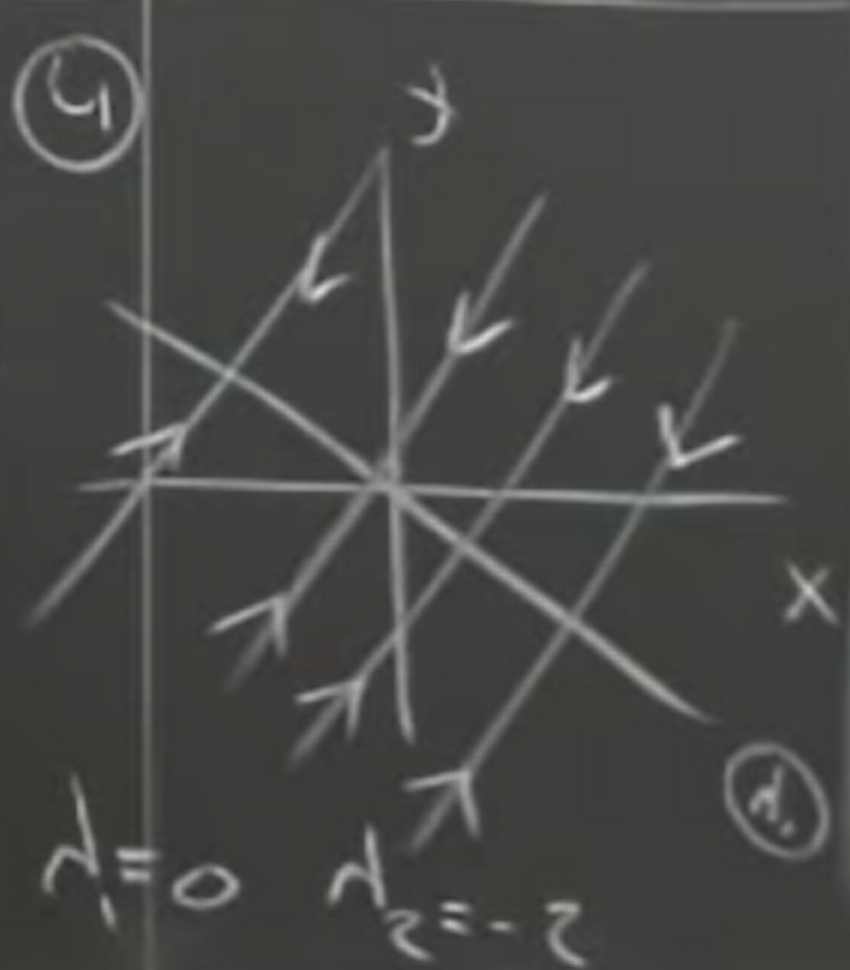 4
y
x
λ₁
λ₁=0 λ₂=-2